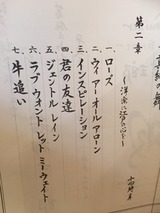 第二章
～洋楽に江戸の心を～
一、ローズ
二、ウィ アー オール アローン
三、インスピレーション
四、君の友達
五、ジェントル レイン
六、ラブ ウォント レット ミー ウェイト
七、牛追い